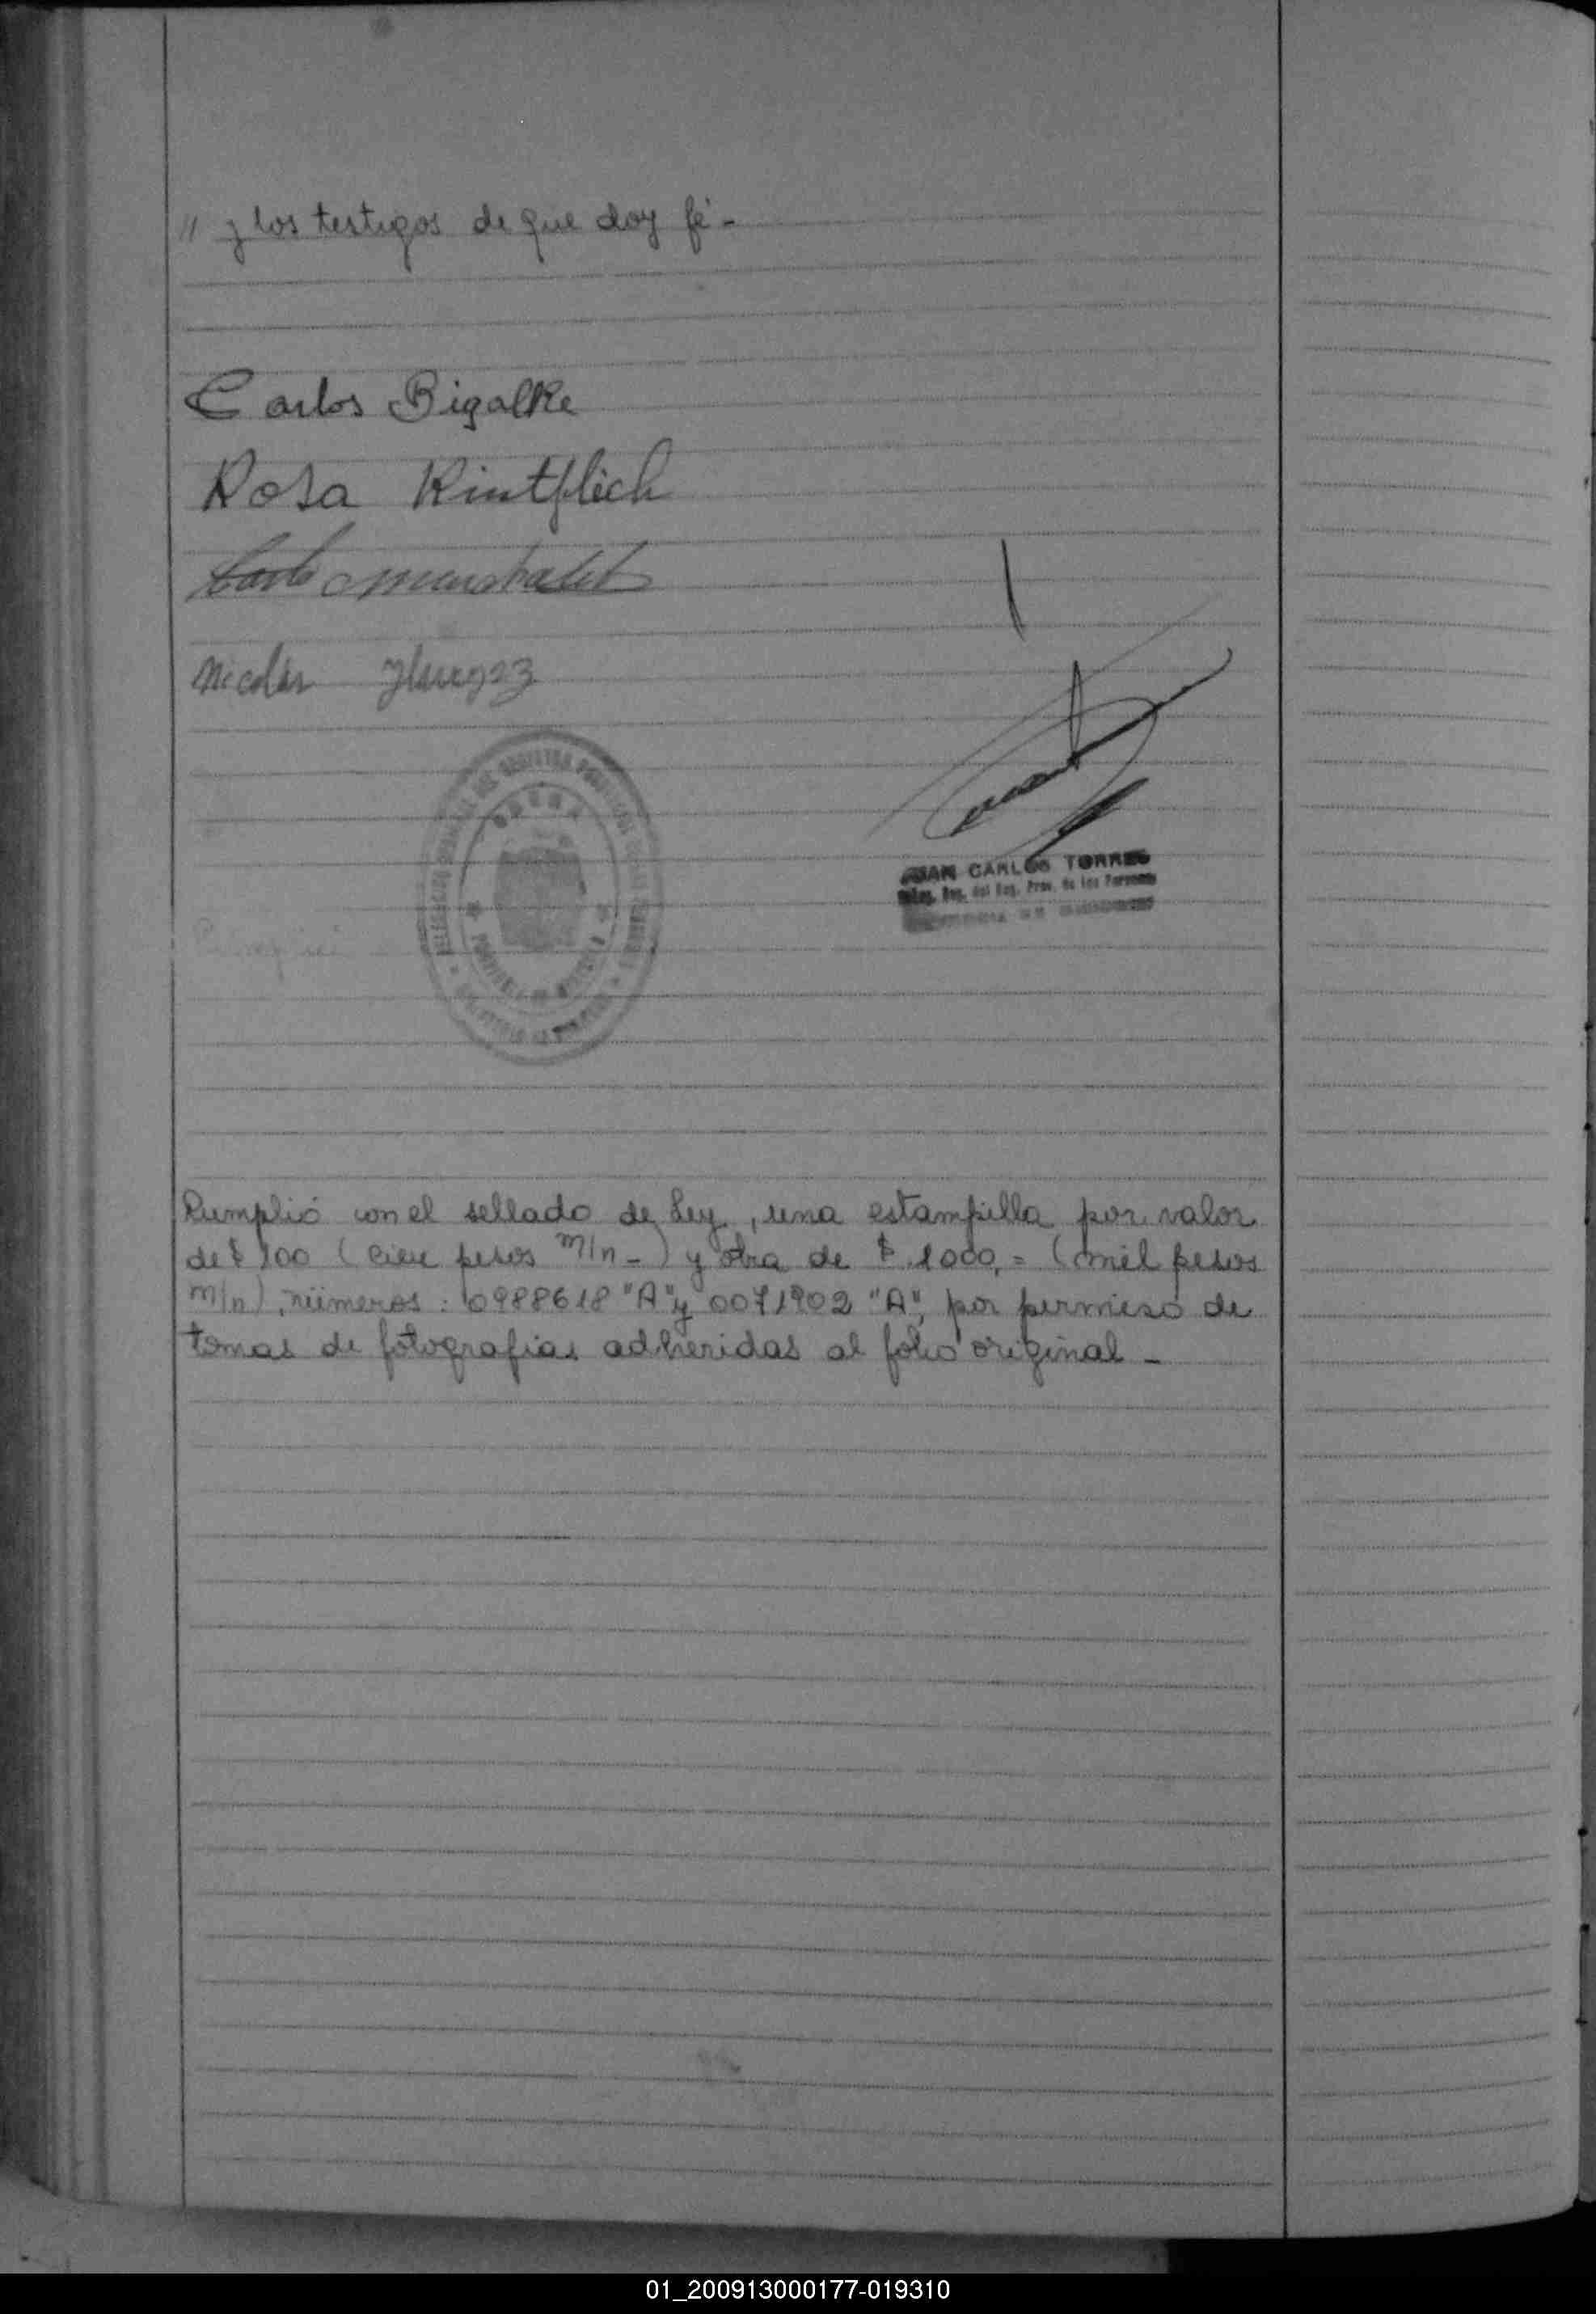 " y los testigos de que doy fé -
Carlos Bigalke
Rosa Kintflich
Nicolás
JUAN CARLOS TORRES
del Reg. Prov. de las Personas
Cumplió con el sellado de Ley, una estampilla por valor
de $ 100 (cien pesos m/n -) y otra de $ 1000,= (mil pesos
m/n), números: 0988618 "A" y 0071902 "A", por permiso de
tomas de fotografias adheridas al folio original -
01_200913000177-019310